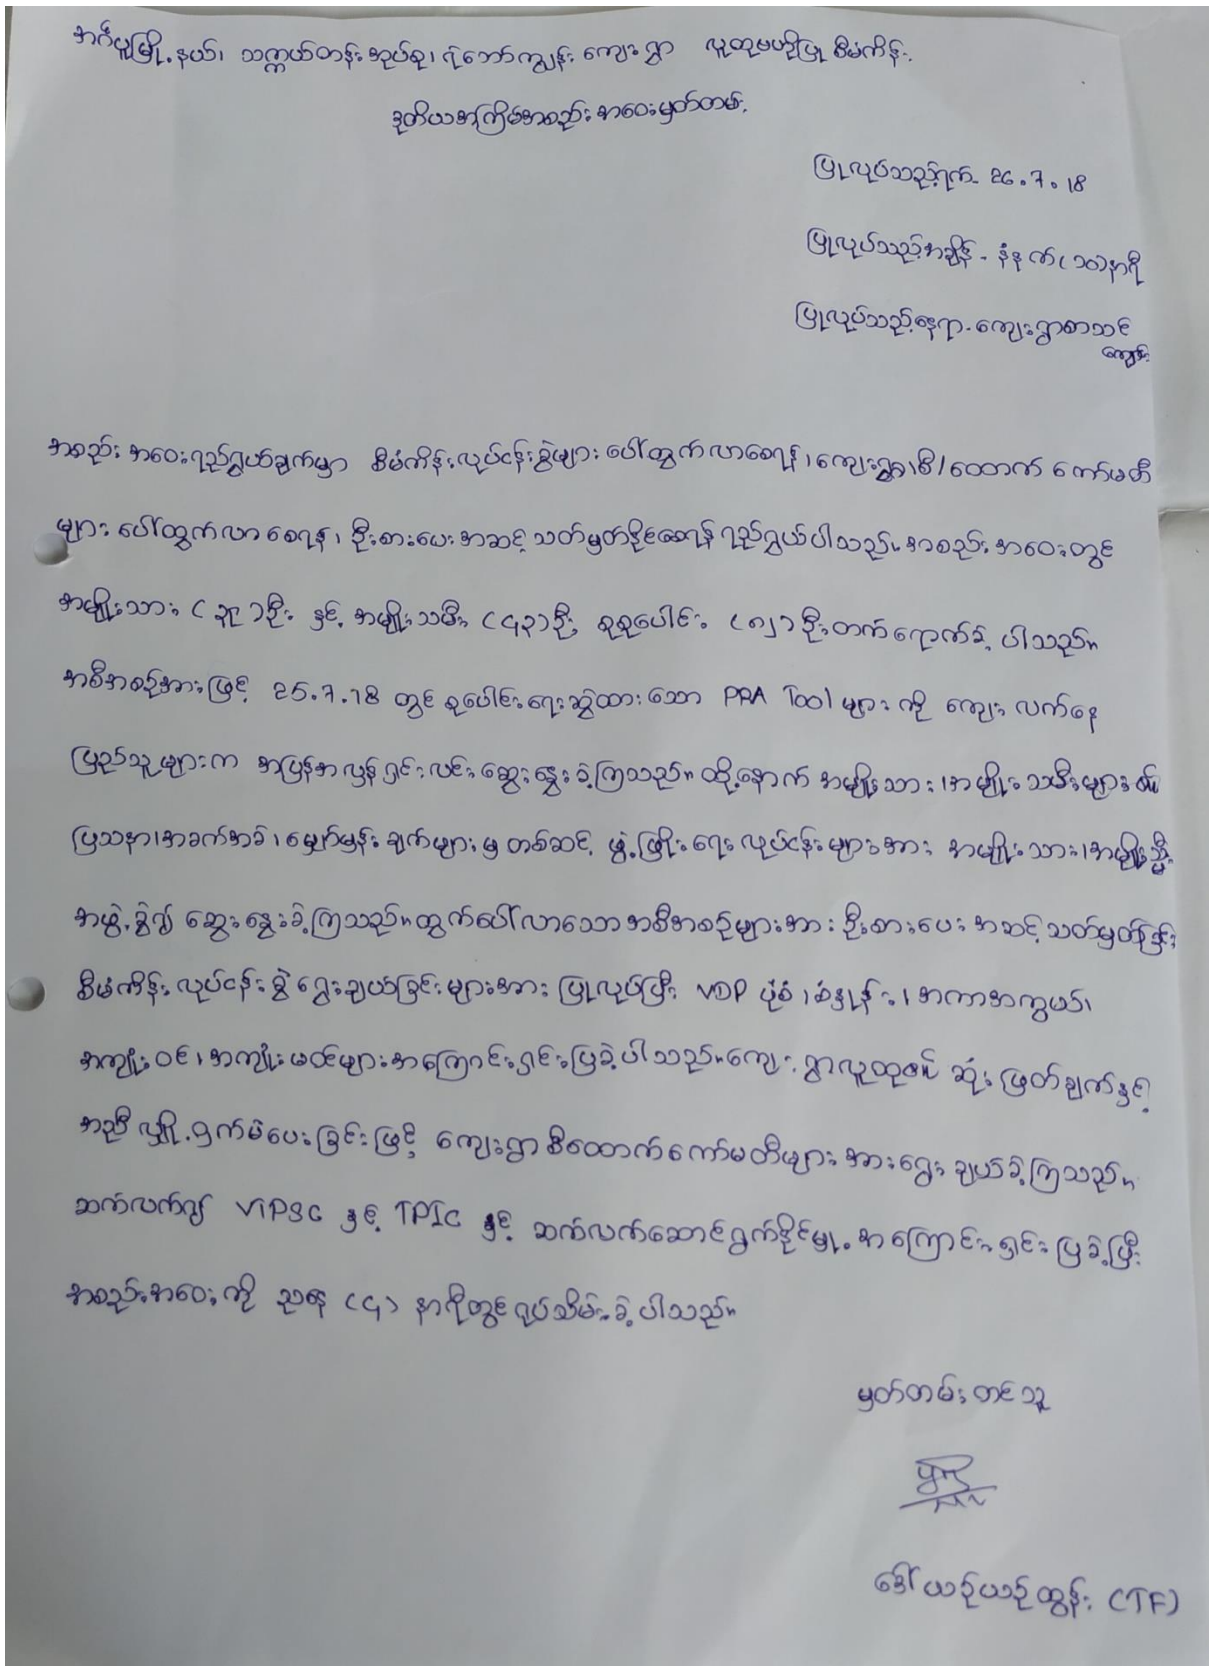 အင်္ဂပူမြို့နယ်၊ သက္ကယ်တန်းအုပ်စု၊ ရဲဘော်ကျွန်း ကျေးရွာ လူထုဗဟိုပြု စီမံကိန်း
ဒုတိယအကြိမ်အစည်းအဝေးမှတ်တမ်း
ပြုလုပ်သည့်ရက်- 26.7.18
ပြုလုပ်သည့်အချိန်- နံနက်(၁၀)နာရီ
ပြုလုပ်သည့်နေရာ-ကျေးရွာစာသင်
ကျောင်း
အစည်းအဝေးရည်ရွယ်ချက်မှာ စီမံကိန်းလုပ်ငန်းခွဲများ ပေါ်ထွက်လာစေရန်၊ ကျေးရွာ/စီ/ထောက် ကော်မတီ
များ ပေါ်ထွက်လာစေရန်၊ ဦးစားပေးအဆင့် သတ်မှတ်နိုင်စေရန် ရည်ရွယ်ပါသည်။ အစည်းအဝေးတွင်
အမျိုးသား (၃၉)ဦး နှင့် အမျိုးသမီး (၄၃)ဦး စုစုပေါင်း (၈၂)ဦးတက်ရောက်ခဲ့ပါသည်။
အစီအစဉ်အားဖြင့် 25.7.18 တွင် စုပေါင်းရေးဆွဲထားသော PRA Tool များကို ကျေးလက်နေ
ပြည်သူများက အပြန်အလှန်ရှင်းလင်းဆွေးနွေးခဲ့ကြသည်။ ထို့နောက် အမျိုးသား၊ အမျိုးသမီးများ၏
ပြဿနာ၊ အခက်အခဲ၊ မျှော်မှန်းချက်များမှ တစ်ဆင့် ဖွံ့ဖြိုးရေးလုပ်ငန်းများအား အမျိုးသား၊ အမျိုးသမီး
အဖွဲ့ခွဲ၍ ဆွေးနွေးခဲ့ကြသည်။ ထွက်ပေါ်လာသောအစီအစဉ်များအား ဦးစားပေးအဆင့်သတ်မှတ်ခြင်း
စီမံကိန်းလုပ်ငန်းခွဲ ရွေးချယ်ခြင်းများအား ပြုလုပ်ပြီး VDP ပုံစံ၊ စံနှုန်း၊ အကာအကွယ်၊
အကျုံးဝင်၊ အကျုံးမဝင်များအကြောင်းရှင်းပြခဲ့ပါသည်။ ကျေးရွာလူထု၏ ဆုံးဖြတ်ချက်နှင့်
အညီ လျှို့ဝှက်မဲပေးခြင်းဖြင့် ကျေးရွာစီထောက်ကော်မတီများအားရွေးချယ်ခဲ့ကြသည်။
ဆက်လက်၍ VTPSC နှင့် TPIC နှင့် ဆက်လက်ဆောင်ရွက်နိုင်မှု အကြောင်းရှင်းပြခဲ့ပြီး
အစည်းအဝေးကို ညနေ (၄) နာရီတွင်ရုပ်သိမ်းခဲ့ပါသည်။
မှတ်တမ်းတင်သူ
ဒေါ်ယဉ်ယဉ်ထွန်း (TF)